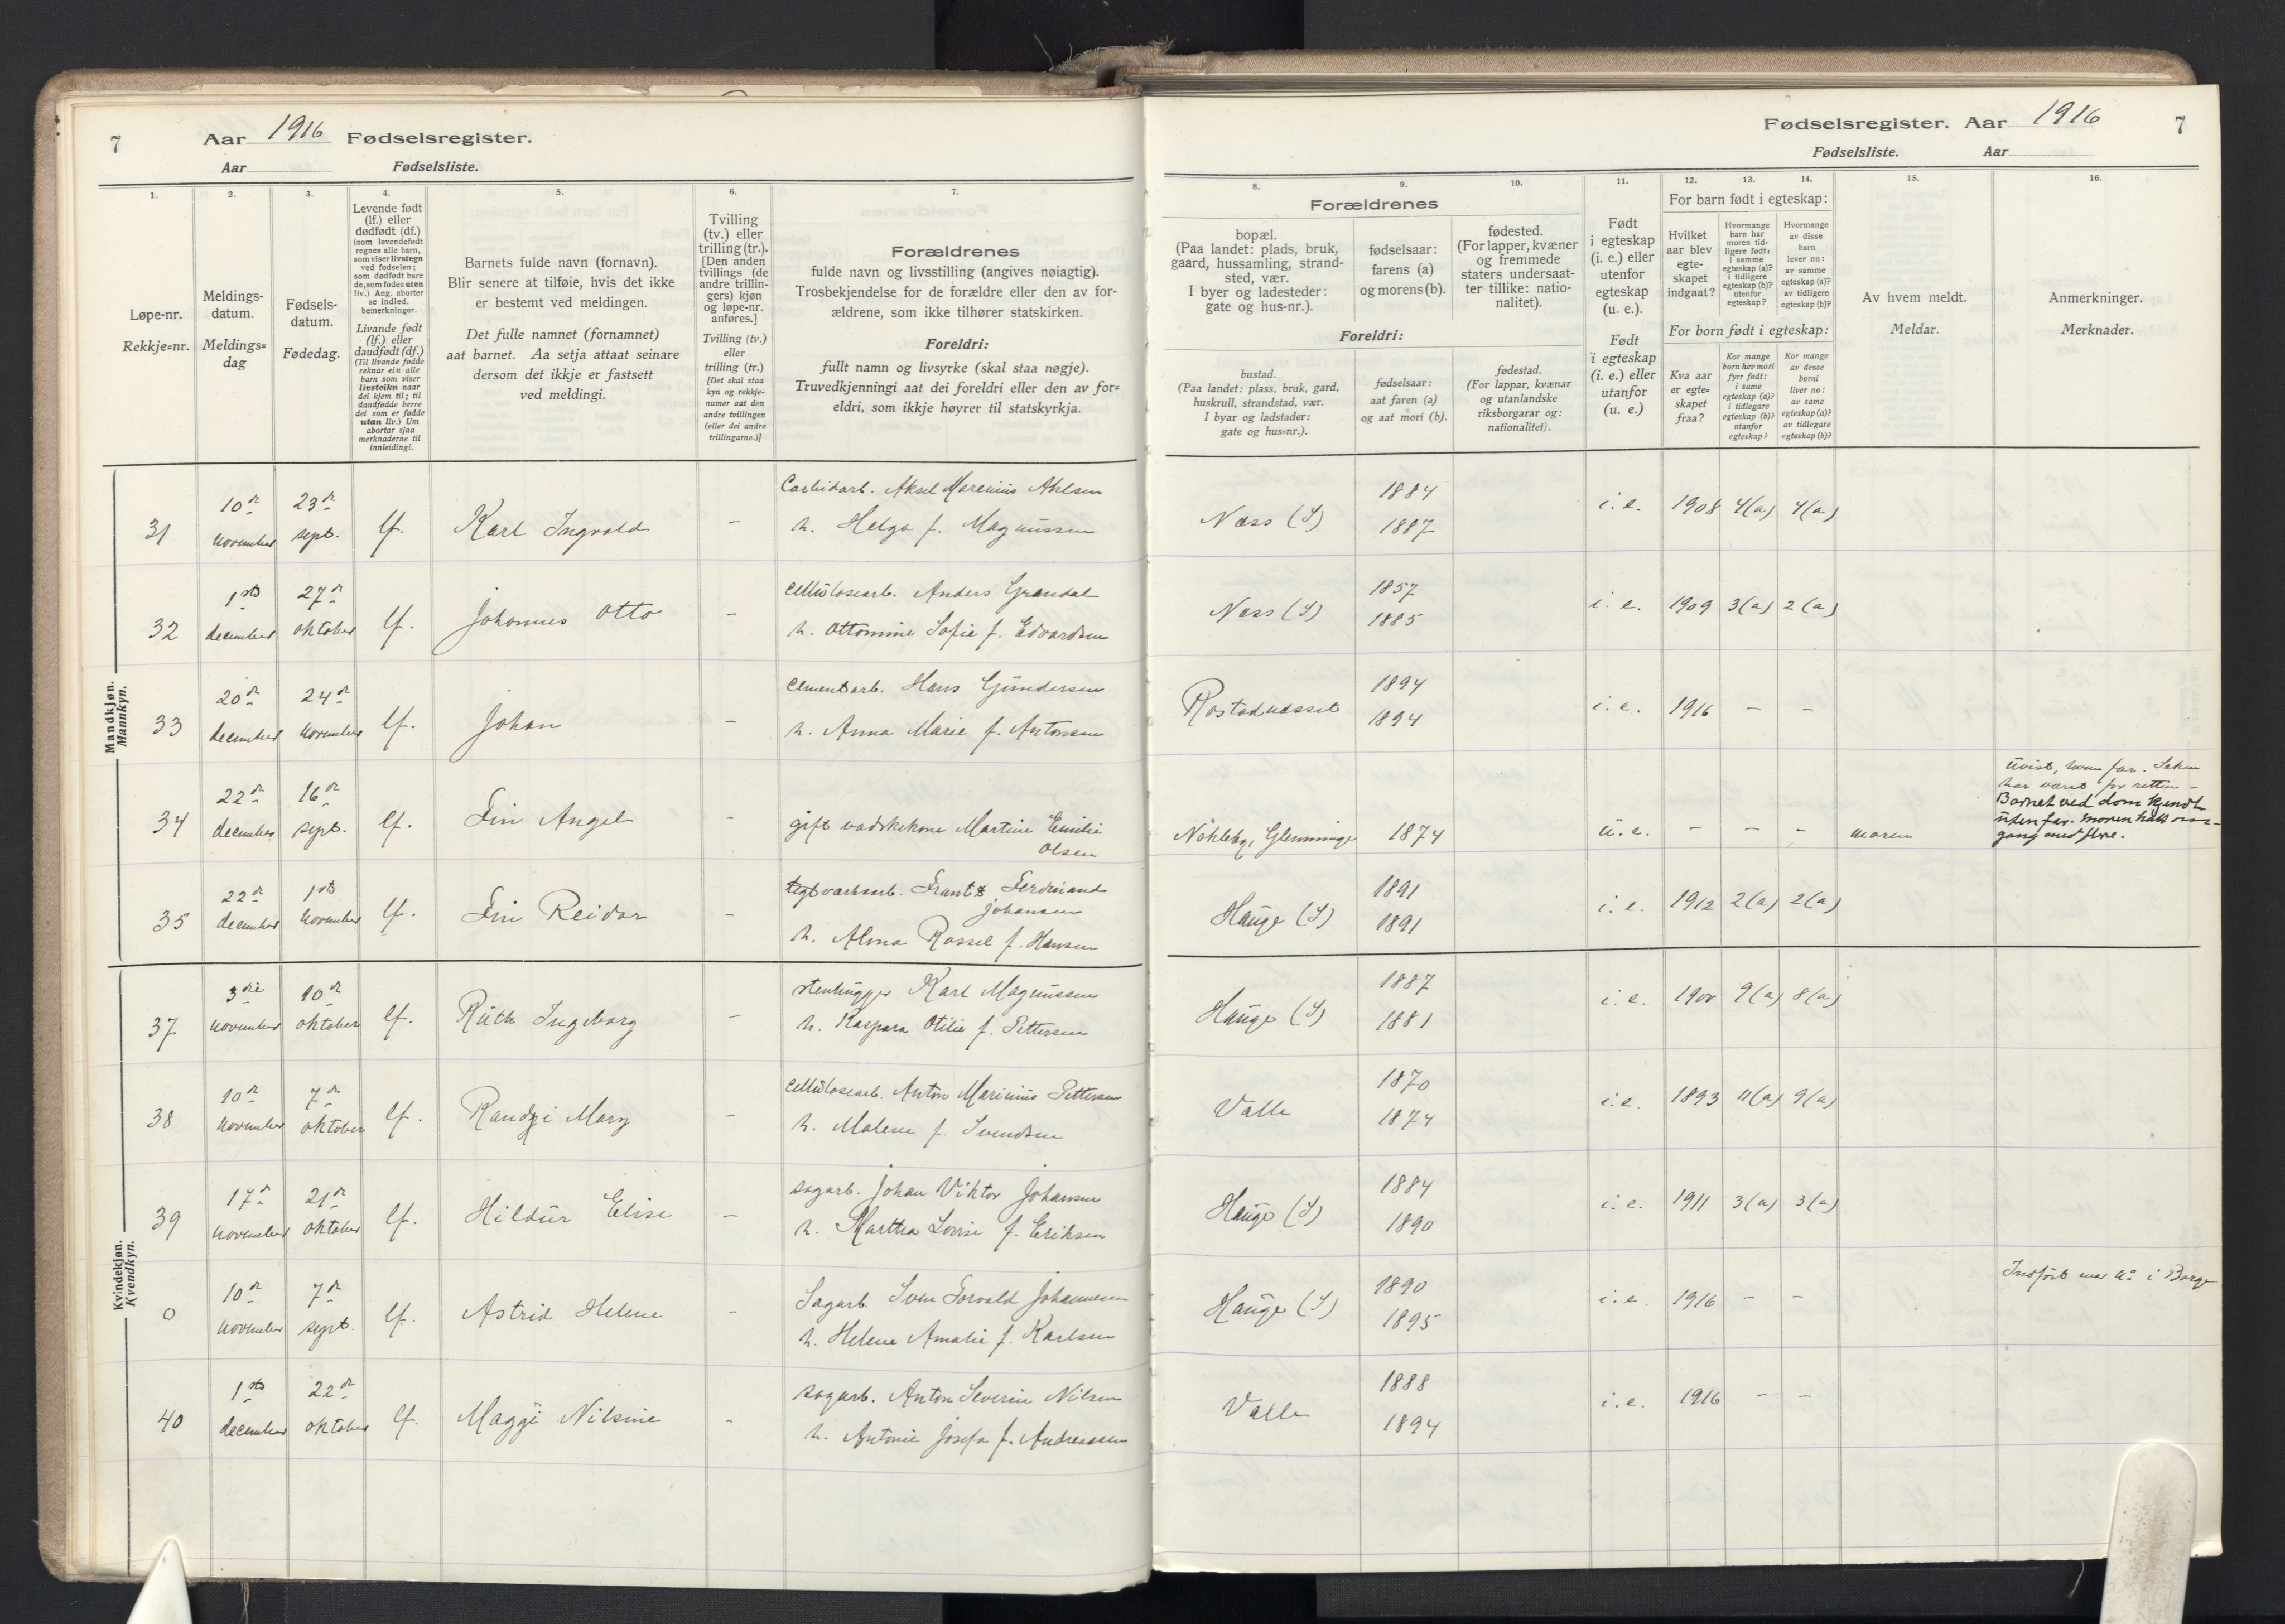 7 Aar 1916 Fødselsregister.
Aar Fødselsliste.
Fødselsregister. Aar 1916 7
Fødselsliste. Aar
1. 2. 3. 4. 5. 6. 7.
Løpe-nr.
Rekkje=nr.
Meldings-
datum.
Meldings=
dag
Fødsels-
datum.
Fødedag.
Levende født
(lf.) eller
dødfødt (df.)
(som levendefødt
regnes alle barn,
som viser livstegn
ved fødselen;
som dødfødt bare
de, som fødes uten
liv.) Ang. aborter
se indled.
bemerkninger.
Livande født
(lf.) eller
daudfødt (df.)
(Til livande fødde
reknar ein alle
barn som viser
livsteikn naar
dei kjem til; til
daudfødde berre
dei som er fødde
utan liv.) Um
abortar sjaa
merknaderne til
innleidingi.
Barnets fulde navn (fornavn).
Blir senere at tilføie, hvis det ikke
er bestemt ved meldingen.
Det fulle namnet (fornamnet)
aat barnet. Aa setja attaat seinare
dersom det ikkje er fastsett
ved meldingi.
Tvilling
(tv.) eller
trilling (tr.).
[Den anden
tvillings (de
andre trillin-
gers) kjøn
og løpe-nr.
anføres.]
Tvilling (tv.)
eller
trilling (tr.)
[Det skal staa
kyn og rekkje-
numer aat den
andre tvillingen
(eller dei andre
trillingarne.)]
Forældrenes
fulde navn og livsstilling (angives nøiagtig).
Trosbekjendelse for de forældre eller den av for-
ældrene, som ikke tilhører statskirken.
Foreldri:
fullt namn og livsyrke (skal staa nøgje).
Truvedkjenningi aat dei foreldri eller den av for=
eldri, som ikkje høyrer til statskyrkja.
8. 9. 10. 11. 12. 13. 14. 15. 16.
Forældrenes
bopæl.
(Paa landet: plads, bruk,
gaard, hussamling, strand-
sted, vær.
I byer og ladesteder:
gate og hus-nr.).
fødselsaar:
farens (a)
og morens (b).
fødested.
(For lapper, kvæner
og fremmede
staters undersaat-
ter tillike: natio-
nalitet).
Foreldri:
bustad.
(Paa landet: plass, bruk, gard,
huskrull, strandstad, vær.
I byar og ladstader:
gate og hus=nr.).
fødselsaar:
aat faren (a)
og aat mori (b).
fødestad.
(For lappar, kvænar
og utanlandske
riksborgarar og:
nationalitet).
Født
i egteskap
(i. e.) eller
utenfor
egteskap
(u. e.).
Født
i egteskap
(i. e.) eller
utanfor
(u. e.)
For barn født i egteskap:
Hvilket
aar blev
egte-
skapet
indgaat?
Hvormange
barn har
moren tid-
ligere født:
i samme
egteskap (a)?
i tidligere
egteskap (b)?
utenfor
egteskap?
Hvormange
av disse
barn
lever nu:
av samme
egteskap (a)?
av tidligere
egteskap (b)?
For born født i egteskap:
Kva aar
er egte=
skapet
fraa?
Kor mange
born hev mori
fyrr født:
i same
egteskap (a)?
i tidlegare
egteskap (b)?
utanfor
egteskap?
Kor mange
av desse
borni
liver no:
av same
egteskap (a)?
av tidlegare
egteskap (b)?
Av hvem meldt.
Meldar.
Anmerkninger.
Merknader.
Mandkjøn.
Mannkyn.
31 10de november 23de sept. lf. Karl Ingvald — Carbidarb. Aksel Marenius Ahlsen
h. Helga f. Magnussen Næss (S) 1884 1887 i. e. 1908 4(a) 4(a)
32 1ste december 27de oktober lf. Johannes Otto — Cellulosearb. Anders Grandal
h. Ottomine Sofie f. Edvardsen Næss (S) 1857 1885 i. e. 1909 3(a) 2(a)
33 20de december 24de november lf. Johan — Cementarb. Hans Gundersen
h. Anna Marie f. Antonsen Rostadnæsset 1894 1894 i. e. 1916 — —
34 22de december 16de sept. lf. Finn Angel — gift vadskekone Martine Emilie
Olsen Nökleby, Glemminge 1874 u. e. — — — moren
Uvist, hvem far. Saken
har været for retten —
Barnet ved dom kjendt
uten far. Moren hatt om-
gang med flere.
35 22de december 1ste november lf. Finn Reidar — teglverksarb. Frantz Ferdinand
Johansen
h. Alma Rossel f. Hansen Hauge (S) 1891 1891 i. e. 1912 2(a) 2(a)
Kvindekjøn.
Kvendkyn.
37 3die november 10de oktober lf. Ruth Ingeborg — stenhugger Karl Magnussen
h. Kaspara Otilie f. Pettersen Hauge (S) 1887 1881 i. e. 1900 9(a) 8(a)
38 10de november 7de oktober lf. Randgi Mary — Cellulosearb. Anton Marinius Pettersen
h. Malene f. Svendsen Valle 1870 1874 i. e. 1893 11(a) 9(a)
39 17de november 21de oktober lf. Hildur Elise — sagarb. Johan Viktor Johansen
h. Martha Lovise f. Eriksen Hauge (S) 1884 1890 i. e. 1911 3(a) 3(a)
0 10de november 7de sept. lf. Astrid Helene — Sagarb. Sven Torvald Johannesen
h. Helene Amalie f. Karlsen Hauge (S) 1890 1895 i. e. 1916 — — Indført med No i Borge
40 1ste december 22de oktober lf. Maggi Nilsine — sagarb. Anton Severin Nilsen
h. Antonie Josefa f. Andreassen Valle 1888 1894 i. e. 1916 — —